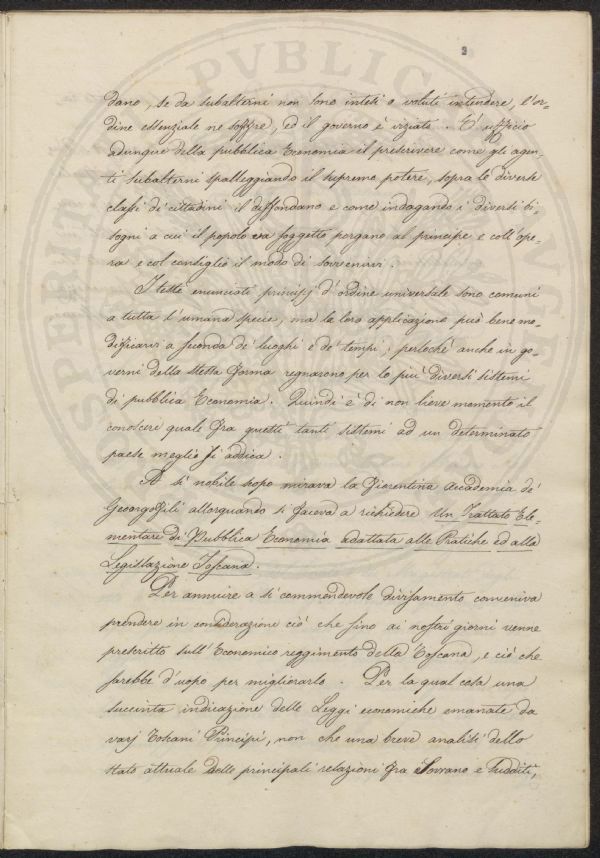 3
dano, se da subalterni non sono intesi o voluti intendere, l'or-
dine essenziale ne soffre, ed il governo è viziato. È ufficio
adunque della pubblica Economia il prescrivere come gli agen-
ti subalterni spalleggiando il supremo potere, sopra le diverse
classi de' cittadini il diffondano e come indagando i diversi bi-
sogni a cui il popolo va soggetto porgano al principe e coll'ope-
ra e col consiglio il modo di sovvenirvi.
I testè enunciati principj d'ordine universale sono comuni
a tutta l'umana specie, ma la loro applicazione può bene mo-
dificarsi a seconda de' luoghi e de' tempi; perlochè anche in go-
verni della stessa forma regnarono per lo più diversi sistemi
di pubblica Economia. Quindi è di non lieve momento il
conoscere quali fra questi tanti sistemi ad un determinato
paese meglio si addica.
A sì nobile scopo mirava la Fiorentina Accademia de'
Georgofili allorquando si faceva a richiedere Un Trattato Ele-
mentare di Pubblica Economia adattata alle Pratiche ed alla
Legislazione Toscana.
Per annuire a sì commendevole divisamento conveniva
prendere in considerazione ciò che sino ai nostri giorni venne
prescritto sull'Economico reggimento della Toscana, e ciò che
sarebbe d'uopo per migliorarlo. Per la qual cosa una
succinta indicazione delle Leggi economiche emanate da
varj Toscani Principi, non che una breve analisi dello
stato attuale delle principali relazioni fra Sovrano e Sudditi,